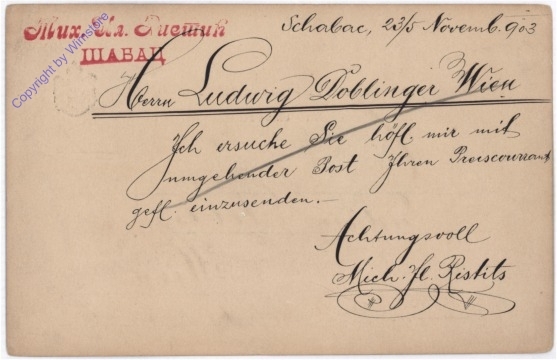 Тих. Ил. Ристић
ШАБАЦ
Schabac, 23/5 Novemb. 903
Herrn Ludwig Doblinger Wien
Ich ersuche Sie höfl. mir mit
umgehender Post Ihren Preiscourrant
gefl. einzusenden.–
Achtungsvoll
Mich. Il. Ristits
Copyright by Winstore